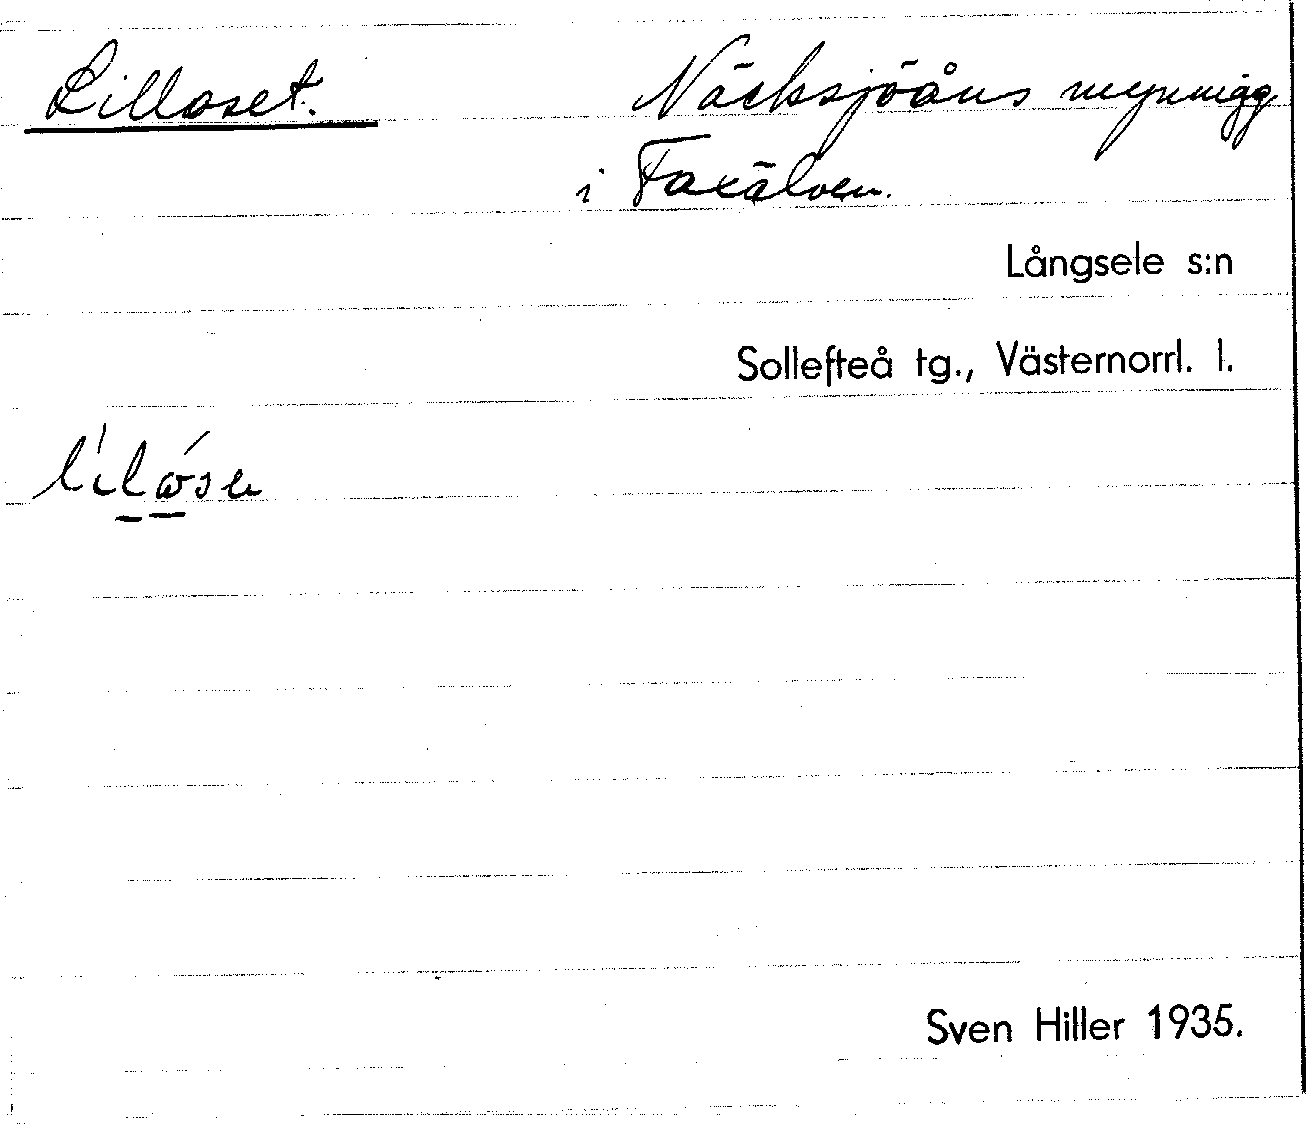 Lilloset. Näcksjöåns mynnigg
i Faxälven.
Långsele s:n
Sollefteå tg., Västernorrl. l.
Sven Hiller 1935.